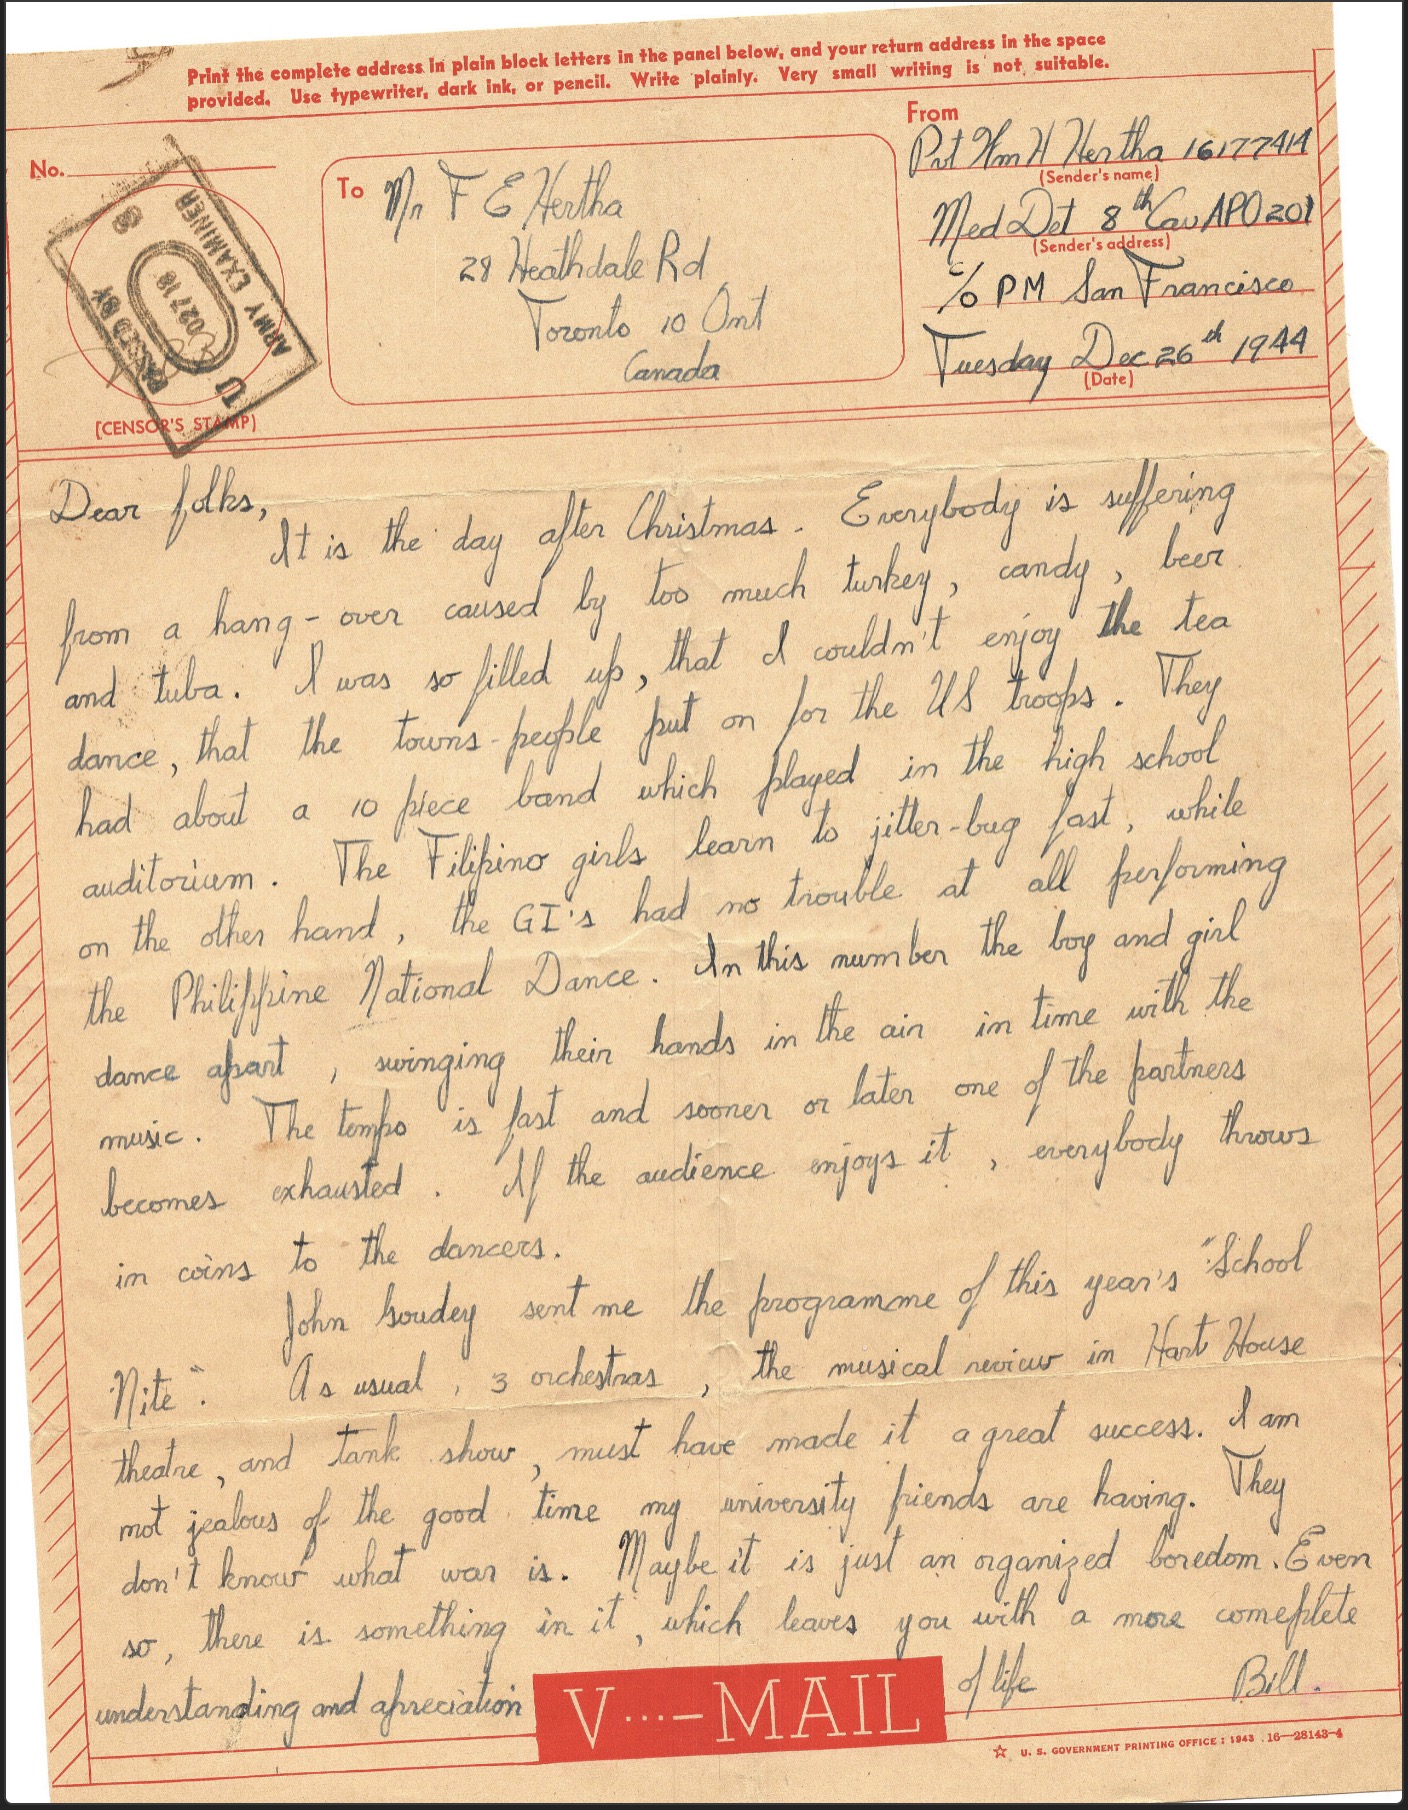 Print the complete address in plain block letters in the panel below, and your return address in the space
provided. Use typewriter, dark ink, or pencil. Write plainly. Very small writing is not suitable.
No.
PASSED BY
U 02718 8
ARMY EXAMINER
(CENSOR'S STAMP)
To
Mr F E Hertha
28 Heathdale Rd
Toronto 10 Ont
Canada
From
Pvt Wm H Hertha 16177414
(Sender's name)
Med Det 8th Cav APO 201
(Sender's address)
c/o PM San Francisco
Tuesday Dec 26th 1944
(Date)
Dear folks,
It is the day after Christmas. Everybody is suffering
from a hang-over caused by too much turkey, candy, beer
and tuba. I was so filled up, that I couldn't enjoy the tea
dance, that the towns-people put on for the US troops. They
had about a 10 piece band which played in the high school
auditorium. The Filipino girls learn to jitter-bug fast, while
on the other hand, the GI's had no trouble at all performing
the Philippine National Dance. In this number the boy and girl
dance apart, swinging their hands in the air in time with the
music. The tempo is fast and sooner or later one of the partners
becomes exhausted. If the audience enjoys it, everybody throws
in coins to the dancers.
John Goudey sent me the programme of this year's "School
Nite". As usual, 3 orchestras, the musical review in Hart House
theatre, and tank show, must have made it a great success. I am
not jealous of the good time my university friends are having. They
don't know what war is. Maybe it is just an organized boredom. Even
so, there is something in it, which leaves you with a more comeplete
understanding and apreciation of life Bill.
V...-MAIL
U. S. GOVERNMENT PRINTING OFFICE : 1943 16-28143-4